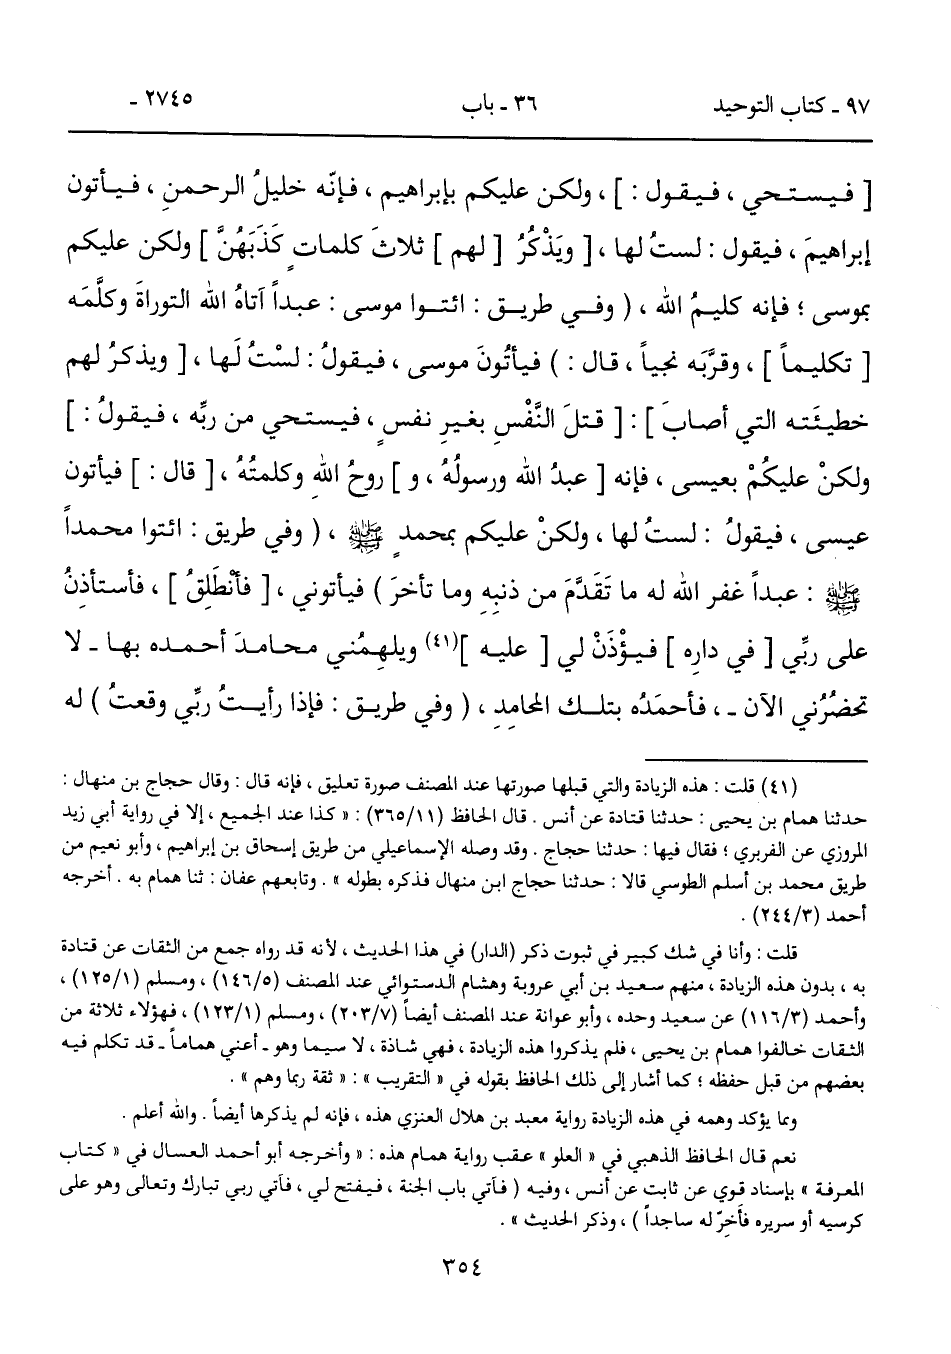 ٩٧ ـ كتاب التوحيد ٣٦ ـ باب ٢٧٤٥ ـ
[ فـيـسـتـحي ، فـيـقول : ] ، ولكن عليكم بإبراهيم ، فـإنّه خليلُ الرحمنِ ، فيـأتون
إبراهيمَ ، فيقول : لستُ لها ، [ ويَذْكُرُ [ لهم ] ثلاثَ كلمات كَذَبَهُنَّ ] ولكن عليكم
بموسى ؛ فإنه كليمُ الله ، ( وفـي طريق : ائتـوا موسى : عبداً آتاهُ الله التوراةَ وكلَّمَه
[ تكليماً ] ، وقرَّبَه نجياً ، قال : ) فيأتُونَ موسى ، فيقولُ : لسْتُ لَها ، [ ويذكرُ لهم
خطيئَته التي أصابَ ] : [ قتلَ النَّفْسِ بغيرِ نفسٍ ، فيستحي من ربِّه ، فيقولُ : ]
ولكنْ عليكُمْ بعيسى ، فإنه [ عبدُ الله ورسولُهُ ، و ] روحُ اللهِ وكلمتُهُ ، [ قال : ] فيأتون
عيسى ، فيقولُ : لستُ لها ، ولكنْ عليكم بمحمدٍ ﷺ ، ( وفي طريق : ائتوا محمداً
ﷺ : عبداً غفر الله له ما تَقَدَّمَ من ذنبِهِ وما تأخرَ ) فيأتوني ، [ فأنْطَلِقُ ] ، فأستأذنُ
على ربِّي [ في دارِه ] فيـؤْذَنْ لي [ عليه ](٤١) ويلهِمُني محامدَ أحمده بها ـ لا
تحضُرُني الآن ـ ، فأحمَدُه بتلك المحامِدِ ، ( وفي طريق : فإذا رأيتُ ربِّي وقعتُ ) له
(٤١) قلت : هذه الزيادة والتي قبلها صورتها عند المصنف صورة تعليق ، فإنه قال : وقال حجاج بن منهال :
حدثنا همام بن يحيى : حدثنا قتادة عن أنس . قال الحافظ (٣٦٥/١١) : « كذا عند الجميع ، إلا في رواية أبي زيد
المروزي عن الفربري ؛ فقال فيها : حدثنا حجاج . وقد وصله الإسماعيلي من طريق إسحاق بن إبراهيم ، وأبو نعيم من
طريق محمد بن أسلم الطوسي قالا : حدثنا حجاج ابن منهال فذكره بطوله » . وتابعهم عفان : ثنا همام به . أخرجه
أحمد (٢٤٤/٣) .
قلت : وأنا في شك كبير في ثبوت ذكر (الدار) في هذا الحديث ، لأنه قد رواه جمع من الثقات عن قتادة
به ، بدون هذه الزيادة ، منهم سعيد بن أبي عروبة وهشام الدستوائي عند المصنف (١٤٦/٥) ، ومسلم (١٢٥/١) ،
وأحمد (١١٦/٣) عن سعيد وحده ، وأبو عوانة عند المصنف أيضاً (٢٠٣/٧) ، ومسلم (١٢٣/١) ، فهؤلاء ثلاثة من
الثقات خالفوا همام بن يحيى ، فلم يذكروا هذه الزيادة ، فهي شاذة ، لا سيما وهو ـ أعني هماماً ـ قد تكلم فيه
بعضهم من قبل حفظه ؛ كما أشار إلى ذلك الحافظ بقوله في « التقريب » : « ثقة ربما وهم » .
ومما يؤكد وهمه في هذه الزيادة رواية معبد بن هلال العنزي هذه ، فإنه لم يذكرها أيضاً . والله أعلم .
نعم قال الحافظ الذهبي في « العلو » عقب رواية همام هذه : « وأخرجه أبو أحمد العسال في « كتاب
المعرفة » بإسناد قوي عن ثابت عن أنس ، وفيه ( فآتي باب الجنة ، فيفتح لي ، فآتي ربي تبارك وتعالى وهو على
كرسيه أو سريره فأَخِرّ له ساجداً ) ، وذكر الحديث » .
٣٥٤